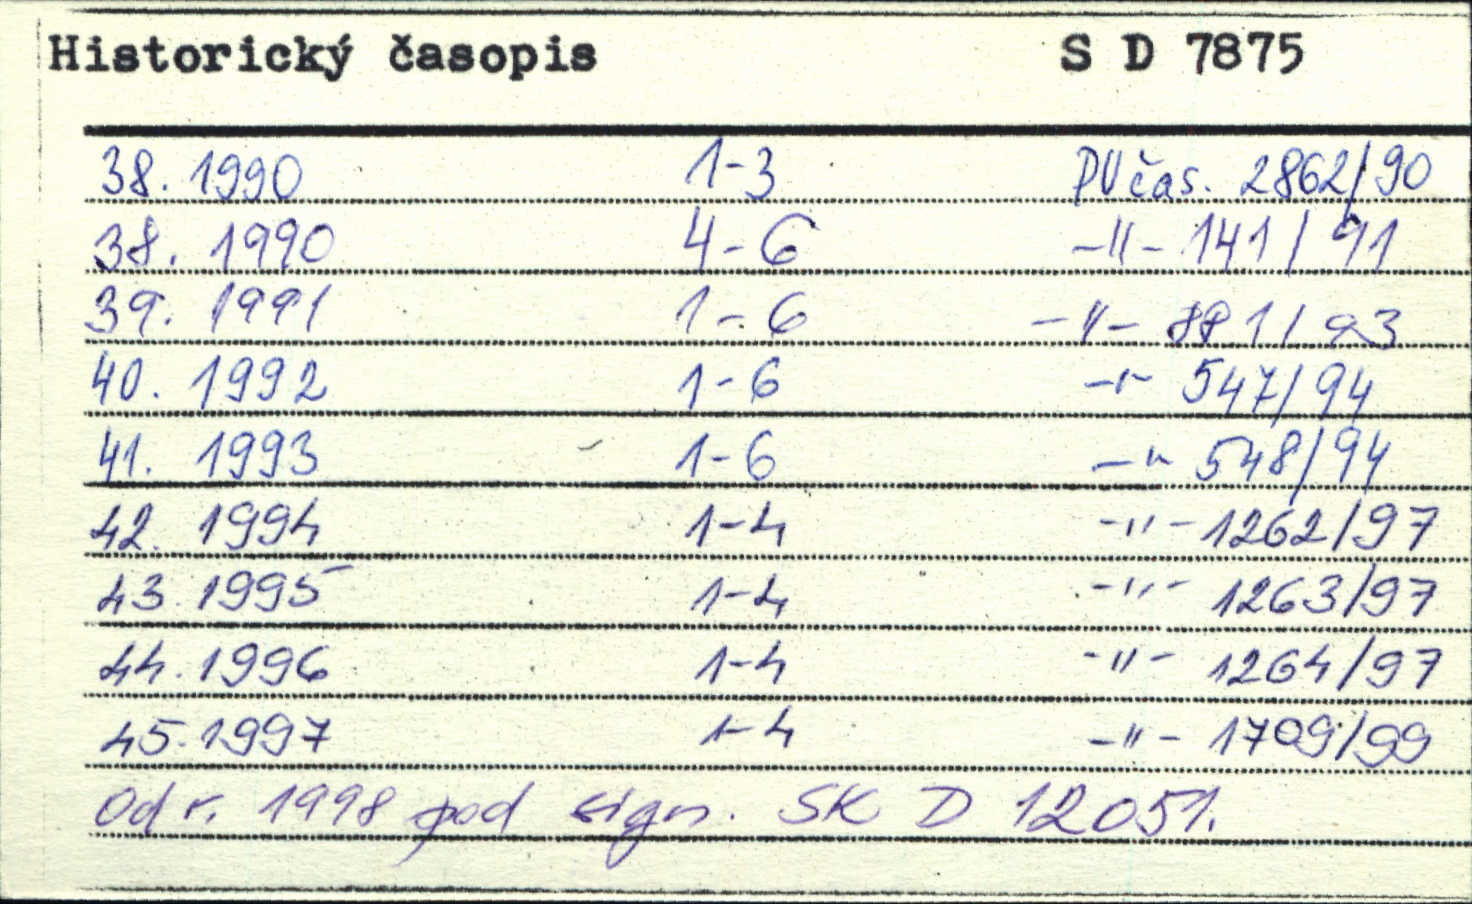 Historický časopis S D 7875
38. 1990 1-3 PV čas. 2862/90
38. 1990 4-6 -"- 141/91
39. 1991 1-6 -"- 881/93
40. 1992 1-6 -"- 547/94
41. 1993 1-6 -"- 548/94
42. 1994 1-4 -"- 1262/97
43. 1995 1-4 -"- 1263/97
44. 1996 1-4 -"- 1264/97
45. 1997 1-4 -"- 1709/99
Od r. 1998 pod sign. SK D 12051.